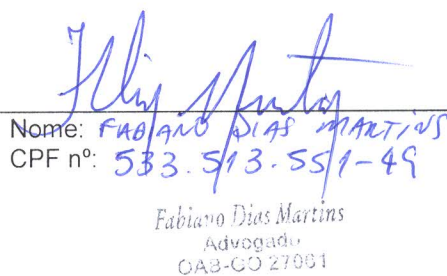 Nome: FABIANO DIAS MARTINS
CPF nº: 533.513.551-49
Fabiano Dias Martins
Advogado
OAB-GO 27061